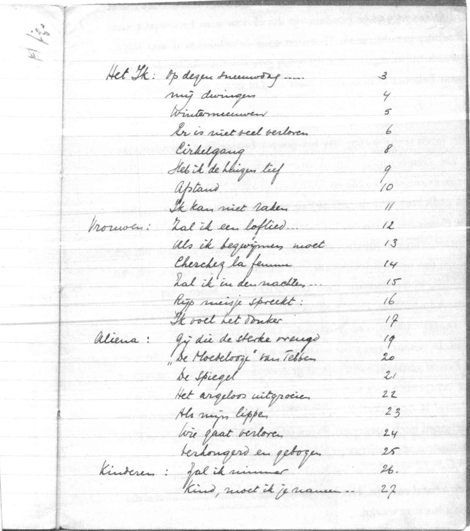 Het Ik: Op dezen sneeuwdag ..... 3
mij dwingen 4
Wintersneeuwen 5
Er is niet veel verloren 6
Cirkelgang 8
Heb ik de huizen lief 9
Afstand 10
Ik kan niet raken 11
Vrouwen: Zal ik een loflied... 12
Als ik bezwijmen moet 13
Cherchez la femme 14
Zal ik in den nachten... 15
Rijp meisje spreekt: 16
Ik voel het donker 17
Aliena: Gij die de sterke vreugd 19
"De Moedelooze" van 20
De Spiegel 21
Het argeloos uitgroeien 22
Als mijn lippen 23
Wie gaat verloren 24
Verhongerd en gebogen 25
Kinderen: Zal ik nimmer 26.
Kind, moet ik je namen... 27